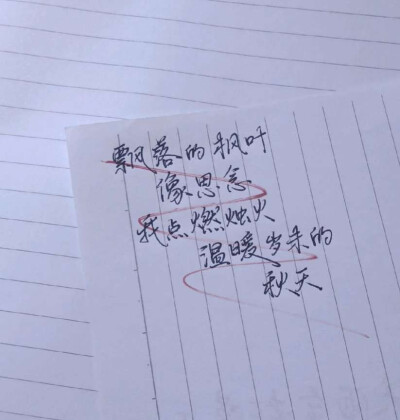 飘落的枫叶
像思念
我点燃烛火
温暖岁末的
秋天